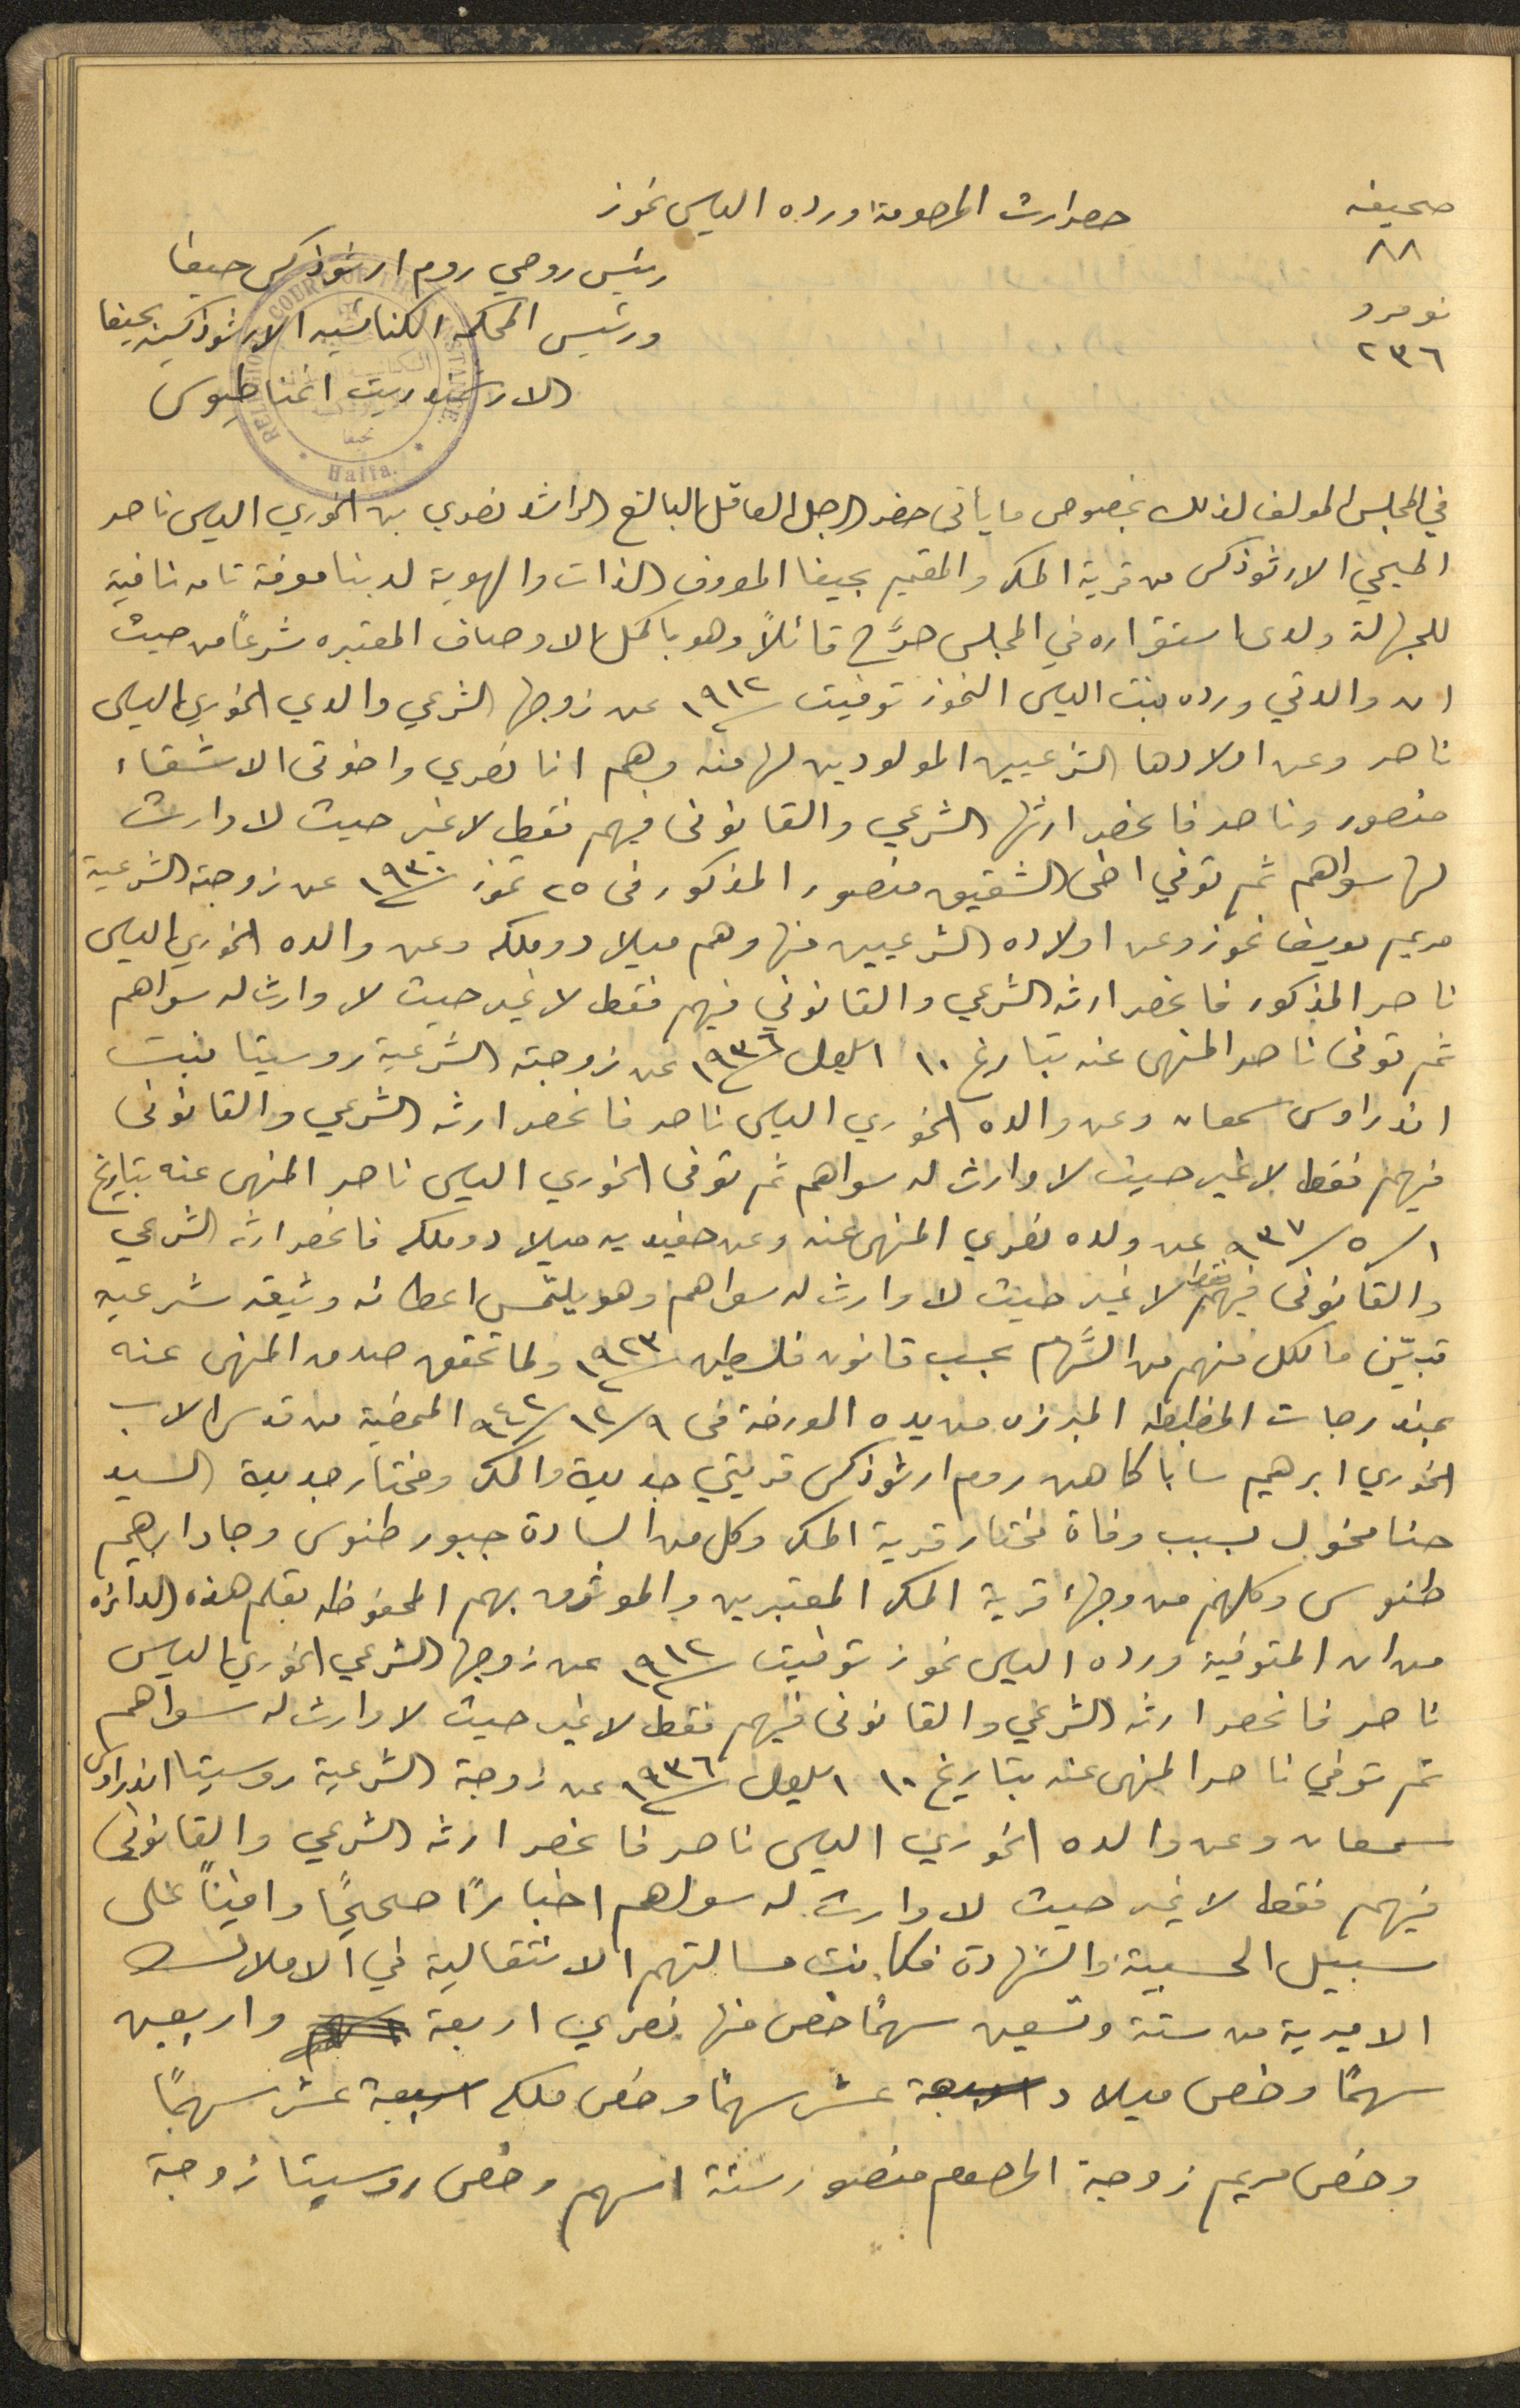 صحيفه
٨٨
نومرو
٢٣٦
حصر ارث المرحومة ورده الياس نحوز
رئيس روحي روم ارثوذكس حيفا
ورئيس المحكمه الكنائسيه الارثوذكسيه بحيفا
الارشمندريت اغناطيوس
RELIGIOUS COURT OF FIRST INSTANCE
Haifa.
بحيفا
في المجلس المولف لذلك بخصوص ما يأتى حضر الرجل العاقل البالغ الراشد نصري بن الخوري الياس ناصر
المسيحي الارثوذكس من قرية المكر والمقيم بحيفا المعروف الذات والهوية لدينا معرفة تامه نافية
للجهالة ولدى استقراره في المجلس صرَّح قائلاً وهو باكمل الاوصاف المعتبره شرعاً من حيث
ان والدتي ورده بنت الياس النحوز توفيت سنة ١٩١٢ عن زوجها الشرعي والدي الخوري الياس
ناصر وعن اولادها الشرعيين المولودين لها منه وهم انا نصري واخوتى الاشقاء
منصور وناصر فانحصر ارثها الشرعي والقانونى فيهم فقط لا غير حيث لا وارث
لها سواهم ثم توفي اخى الشقيق منصور المذكور فى ٢٥ تموز سنة ١٩٣٠ عن زوجته الشرعية
مريم يوسف نحوز وعن اولاده الشرعيين منها وهم ميلاد وملكه وعن والده الخوري الياس
ناصر المذكور فانحصر ارثه الشرعي والقانوني فيهم فقط لا غير حيث لا وارث له سواهم
ثم توفى ناصر المنهى عنه بتاريخ ١٠ ايلول سنة ١٩٣٦ عن زوجته الشرعية روسيتا بنت
اندراوس سمعان وعن والده الخوري الياس ناصر فانحصر ارثه الشرعي والقانونى
فيهم فقط لا غير حيث لا وارث له سواهم ثم توفى الخوري الياس ناصر المنهى عنه بتاريخ
١/٥/٩٣٧ عن ولده نصري المنهى عنه وعن حفيديه ميلاد وملكه فانحصر ارثه الشرعي
والقانونى فيهم فقط لا غير حيث لا وارث له سواهم وهو يلتمس اعطائه وثيقه شرعيه
تبيّن ما لكل منهم من السَّهام بحسب قانون فلسطين سنة ١٩٢٣ ولما تحقق صدق المنهى عنه
بمندرجات المظبطه المبرزه من يده المورخة فى ٩/١٢/٩٤٢ الممضية من قدس الاب
الخوري ابرهيم سابا كاهن روم ارثوذكس قريتي جديدة والمكر ومختار جديدة السيد
حنا مخول بسبب وفاة مختار قرية المكر وكل من السادة جبور طنوس وجاد ابرهيم
طنوس وكلهم من وجهاء قرية المكر المعتبرين والموثوق بهم المحفوظه بقلم هذه الدائره
من ان المتوفية ورده الياس نحوز توفيت سنة ١٩١٢ عن زوجها الشرعي الخوري الياس
ناصر فانحصر ارثه الشرعي والقانونى فيهم فقط لا غير حيث لا وارث له سواهم
ثم توفي ناصر المنهى عنه بتاريخ ١٠ ايلول سنة ١٩٣٦ عن زوجة الشرعية روسيتا اندراوس
سمعان وعن والده الخوري الياس ناصر فانحصر ارثه الشرعي والقانوني
فيهم فقط لا غير حيث لا وارث له سواهم اخباراً صحيحًا وافيًا على
سبيل الحسبية والشهادة فكانت مسالتهم الانتقالية في الاملاك
الاميرية من ستة وتسعين سهمًا خص منها نصري اربعة واربعين
سهمًا وخص ميلاد اربعة عشر سهمًا وخص ملكه اربعة عشر سهمًا
وخص مريم زوجة المرحوم منصور ستة اسهم وخص روسيتا زوجة